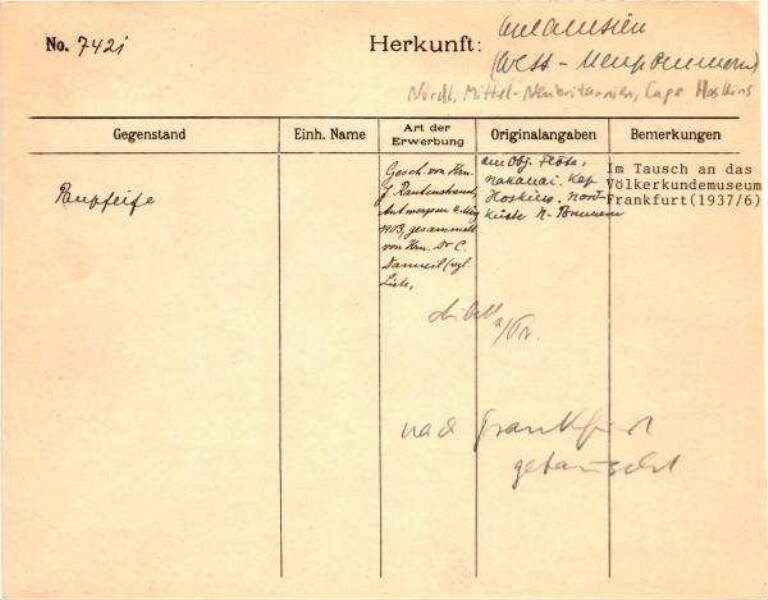 No. 742i
Herkunft: Melanesien
(West-Neupommern)
Nördl. Mittel-Neubritannien, Cape Hoskins
Gegenstand
Einh. Name
Art der
Erwerbung
Originalangaben
Bemerkungen
Panpfeife
Gesch. von Hrn.
J. Rautenstrauch,
Antwerpen
1903, gesammelt
von Hrn. Dr C.
Danneil (vgl.
Liste,
am Obj. Flöte,
Nakanai. Kap
Hoskins. Nord-
küste N-Pommern
Im Tausch an das
Völkerkundemuseum
Frankfurt(1937/6)
nach Frankfurt
getauscht